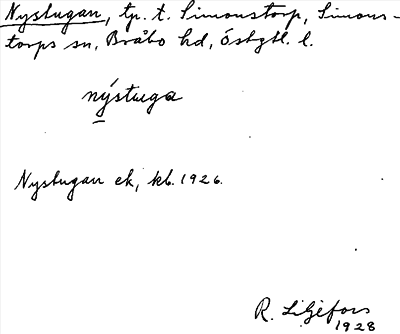 Nystugan, tp. t. Simonstorp, Simons-
torps sn, Bråbo hd, Östgtl. l.
nýstuga
Nystugan ek, kb. 1926.
R. Liljefors
1928